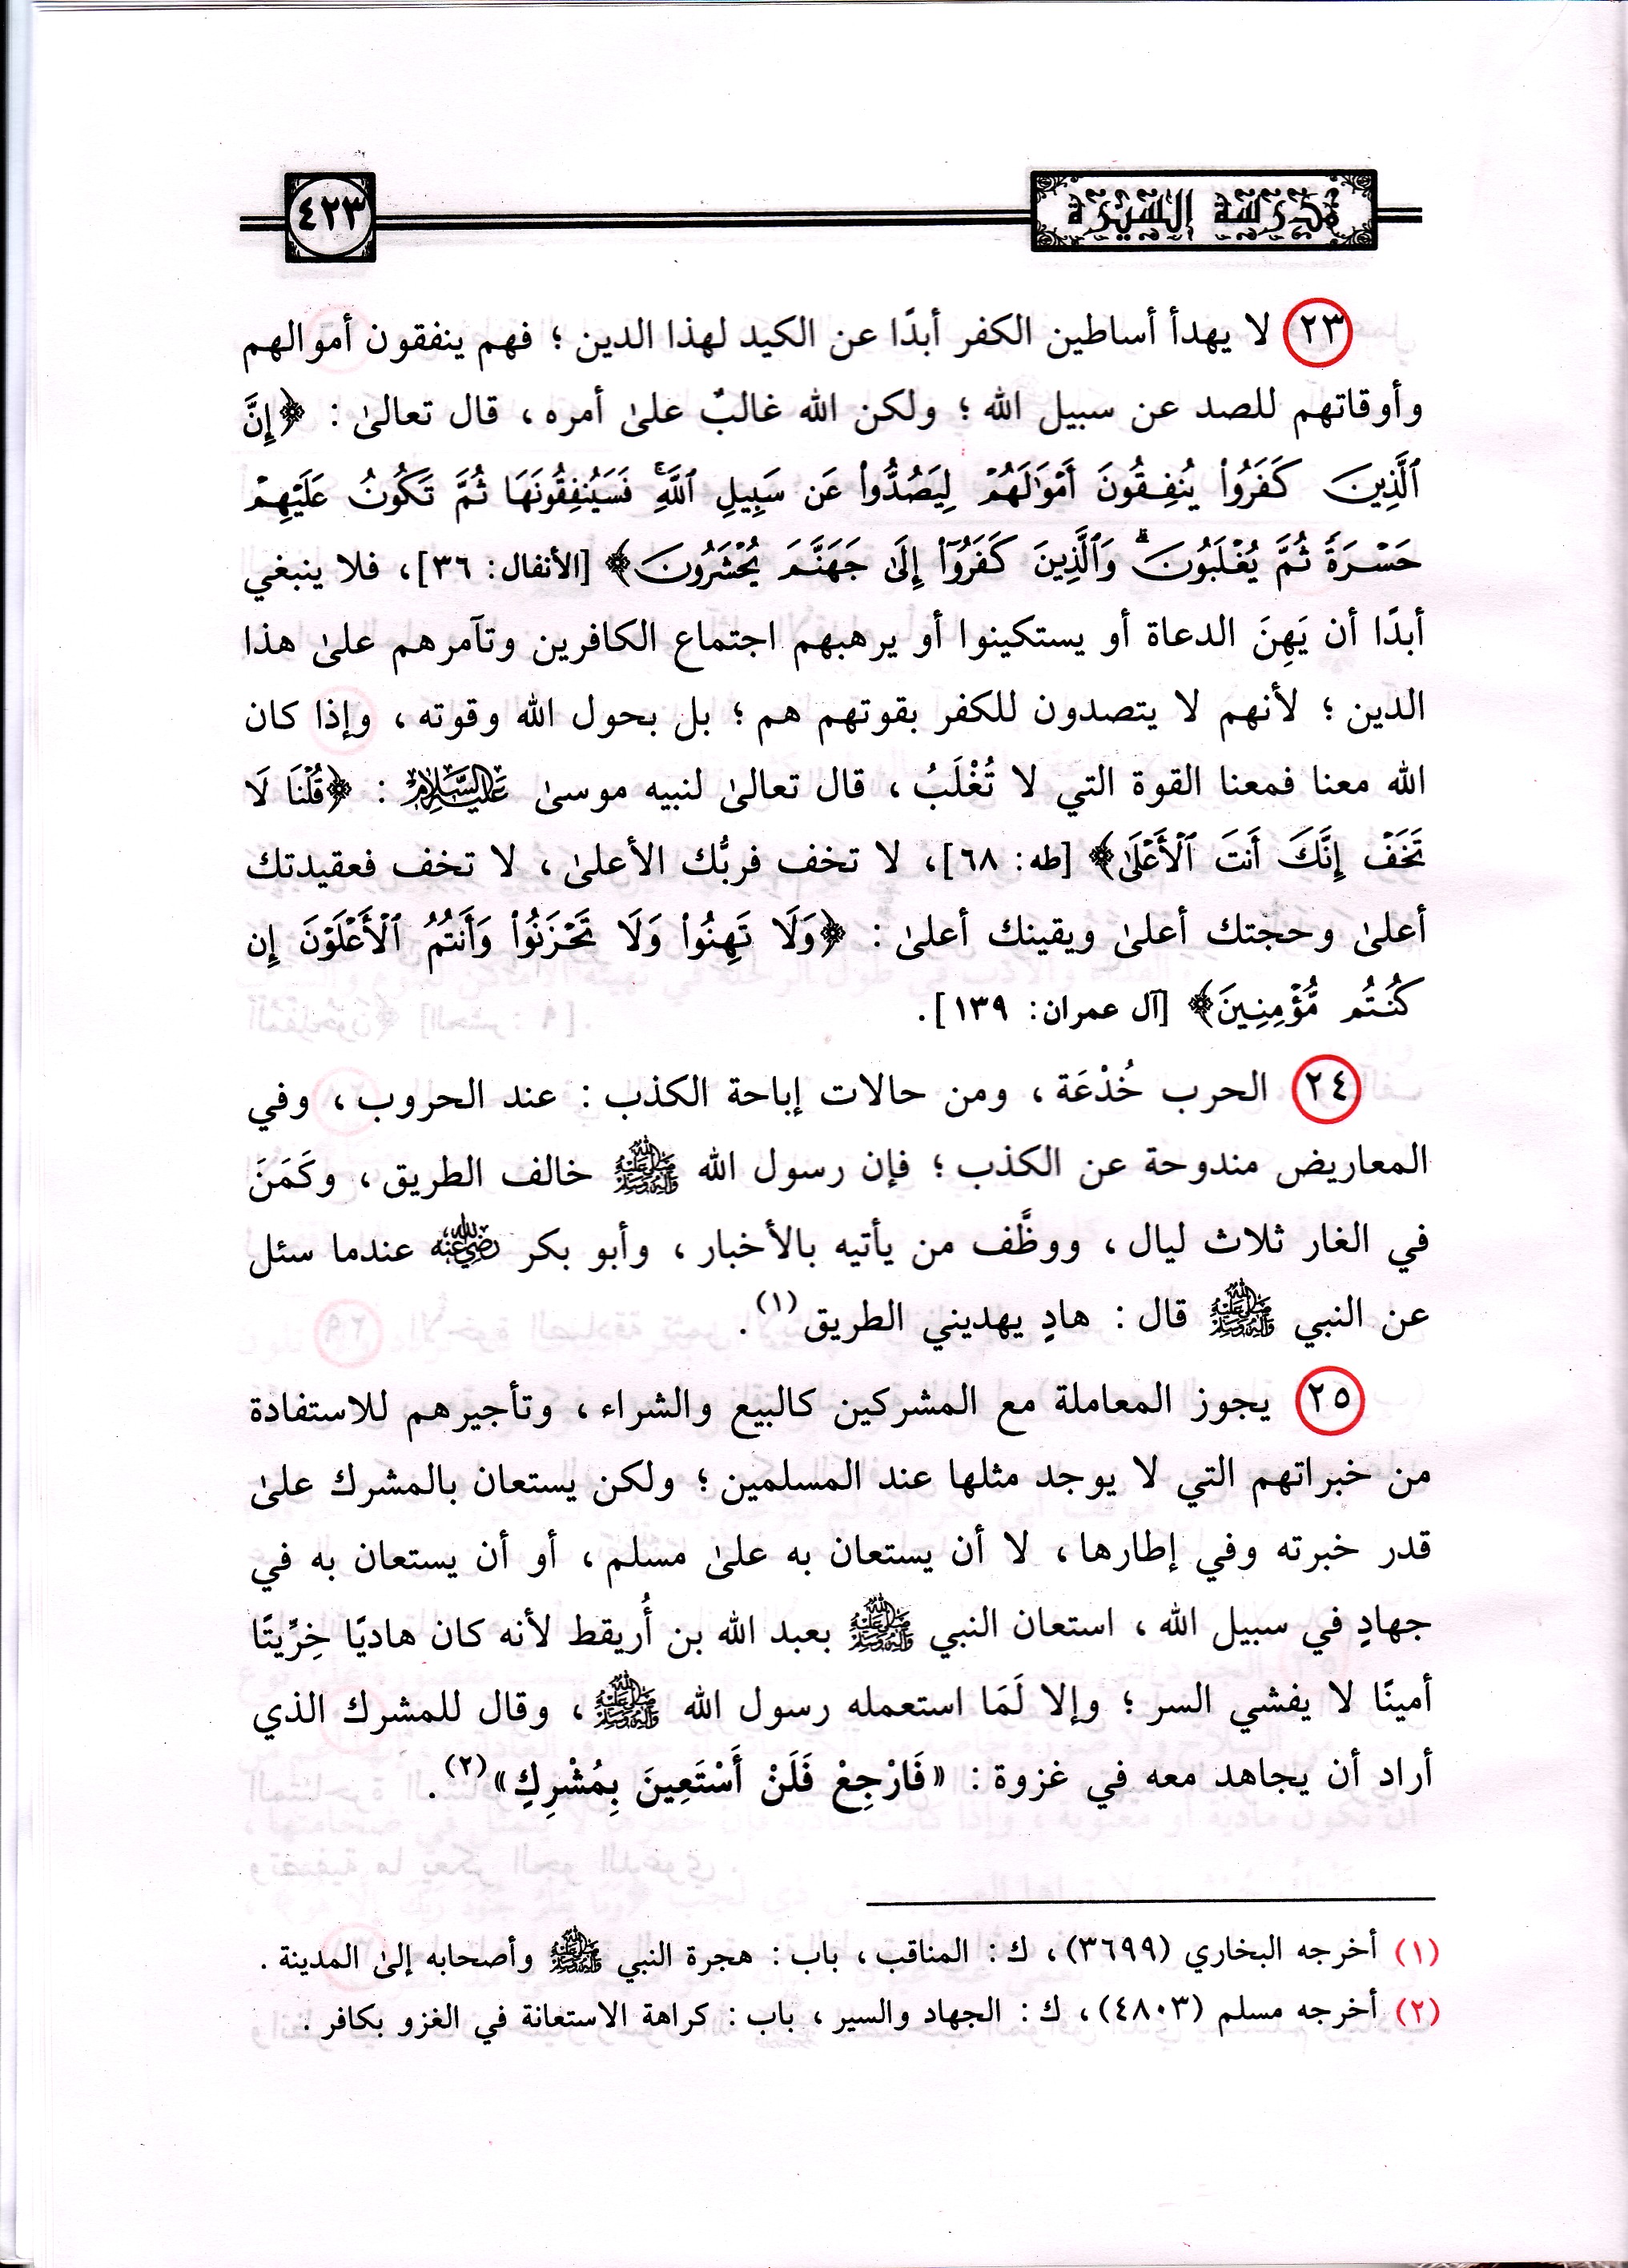 مدرسة السيرة
٤٢٣
٢٣ لا يهدأ أساطين الكفر أبدًا عن الكيد لهذا الدين ؛ فهم ينفقون أموالهم
وأوقاتهم للصد عن سبيل الله ؛ ولكن الله غالبٌ علىٰ أمره ، قال تعالىٰ : ﴿إِنَّ
ٱلَّذِينَ كَفَرُوا۟ يُنفِقُونَ أَمْوَٰلَهُمْ لِيَصُدُّوا۟ عَن سَبِيلِ ٱللَّهِۚ فَسَيُنفِقُونَهَا ثُمَّ تَكُونُ عَلَيْهِمْ
حَسْرَةً ثُمَّ يُغْلَبُونَۗ وَٱلَّذِينَ كَفَرُوٓا۟ إِلَىٰ جَهَنَّمَ يُحْشَرُونَ﴾ [الأنفال: ٣٦]، فلا ينبغي
أبدًا أن يَهِنَ الدعاة أو يستكينوا أو يرهبهم اجتماع الكافرين وتآمرهم علىٰ هذا
الدين ؛ لأنهم لا يتصدون للكفر بقوتهم هم ؛ بل بحول الله وقوته ، وإذا كان
الله معنا فمعنا القوة التي لا تُغْلَبُ ، قال تعالىٰ لنبيه موسىٰ عَلَيْهِ السَّلَامُ : ﴿قُلْنَا لَا
تَخَفْ إِنَّكَ أَنتَ ٱلْأَعْلَىٰ﴾ [طه: ٦٨]، لا تخف فربُّك الأعلىٰ ، لا تخف فعقيدتك
أعلىٰ وحجتك أعلىٰ ويقينك أعلىٰ : ﴿وَلَا تَهِنُوا۟ وَلَا تَحْزَنُوا۟ وَأَنتُمُ ٱلْأَعْلَوْنَ إِن
كُنتُم مُّؤْمِنِينَ﴾ [آل عمران: ١٣٩].
٢٤ الحرب خُدْعَة ، ومن حالات إباحة الكذب : عند الحروب ، وفي
المعاريض مندوحة عن الكذب ؛ فإن رسول الله ﷺ خالف الطريق ، وكَمَنَ
في الغار ثلاث ليال ، ووظَّف من يأتيه بالأخبار ، وأبو بكر رضي الله عنه عندما سئل
عن النبي ﷺ قال : هادٍ يهديني الطريق (١) .
٢٥ يجوز المعاملة مع المشركين كالبيع والشراء ، وتأجيرهم للاستفادة
من خبراتهم التي لا يوجد مثلها عند المسلمين ؛ ولكن يستعان بالمشرك علىٰ
قدر خبرته وفي إطارها ، لا أن يستعان به علىٰ مسلم ، أو أن يستعان به في
جهادٍ في سبيل الله ، استعان النبي ﷺ بعبد الله بن أُريقط لأنه كان هاديًا خِرِّيتًا
أمينًا لا يفشي السر ؛ وإلا لَمَا استعمله رسول الله ﷺ ، وقال للمشرك الذي
أراد أن يجاهد معه في غزوة : «فَارْجِعْ فَلَنْ أَسْتَعِينَ بِمُشْرِكٍ» (٢) .
(١) أخرجه البخاري (٣٦٩٩) ، ك : المناقب ، باب : هجرة النبي ﷺ وأصحابه إلىٰ المدينة .
(٢) أخرجه مسلم (٤٨٠٣) ، ك : الجهاد والسير ، باب : كراهة الاستعانة في الغزو بكافر .